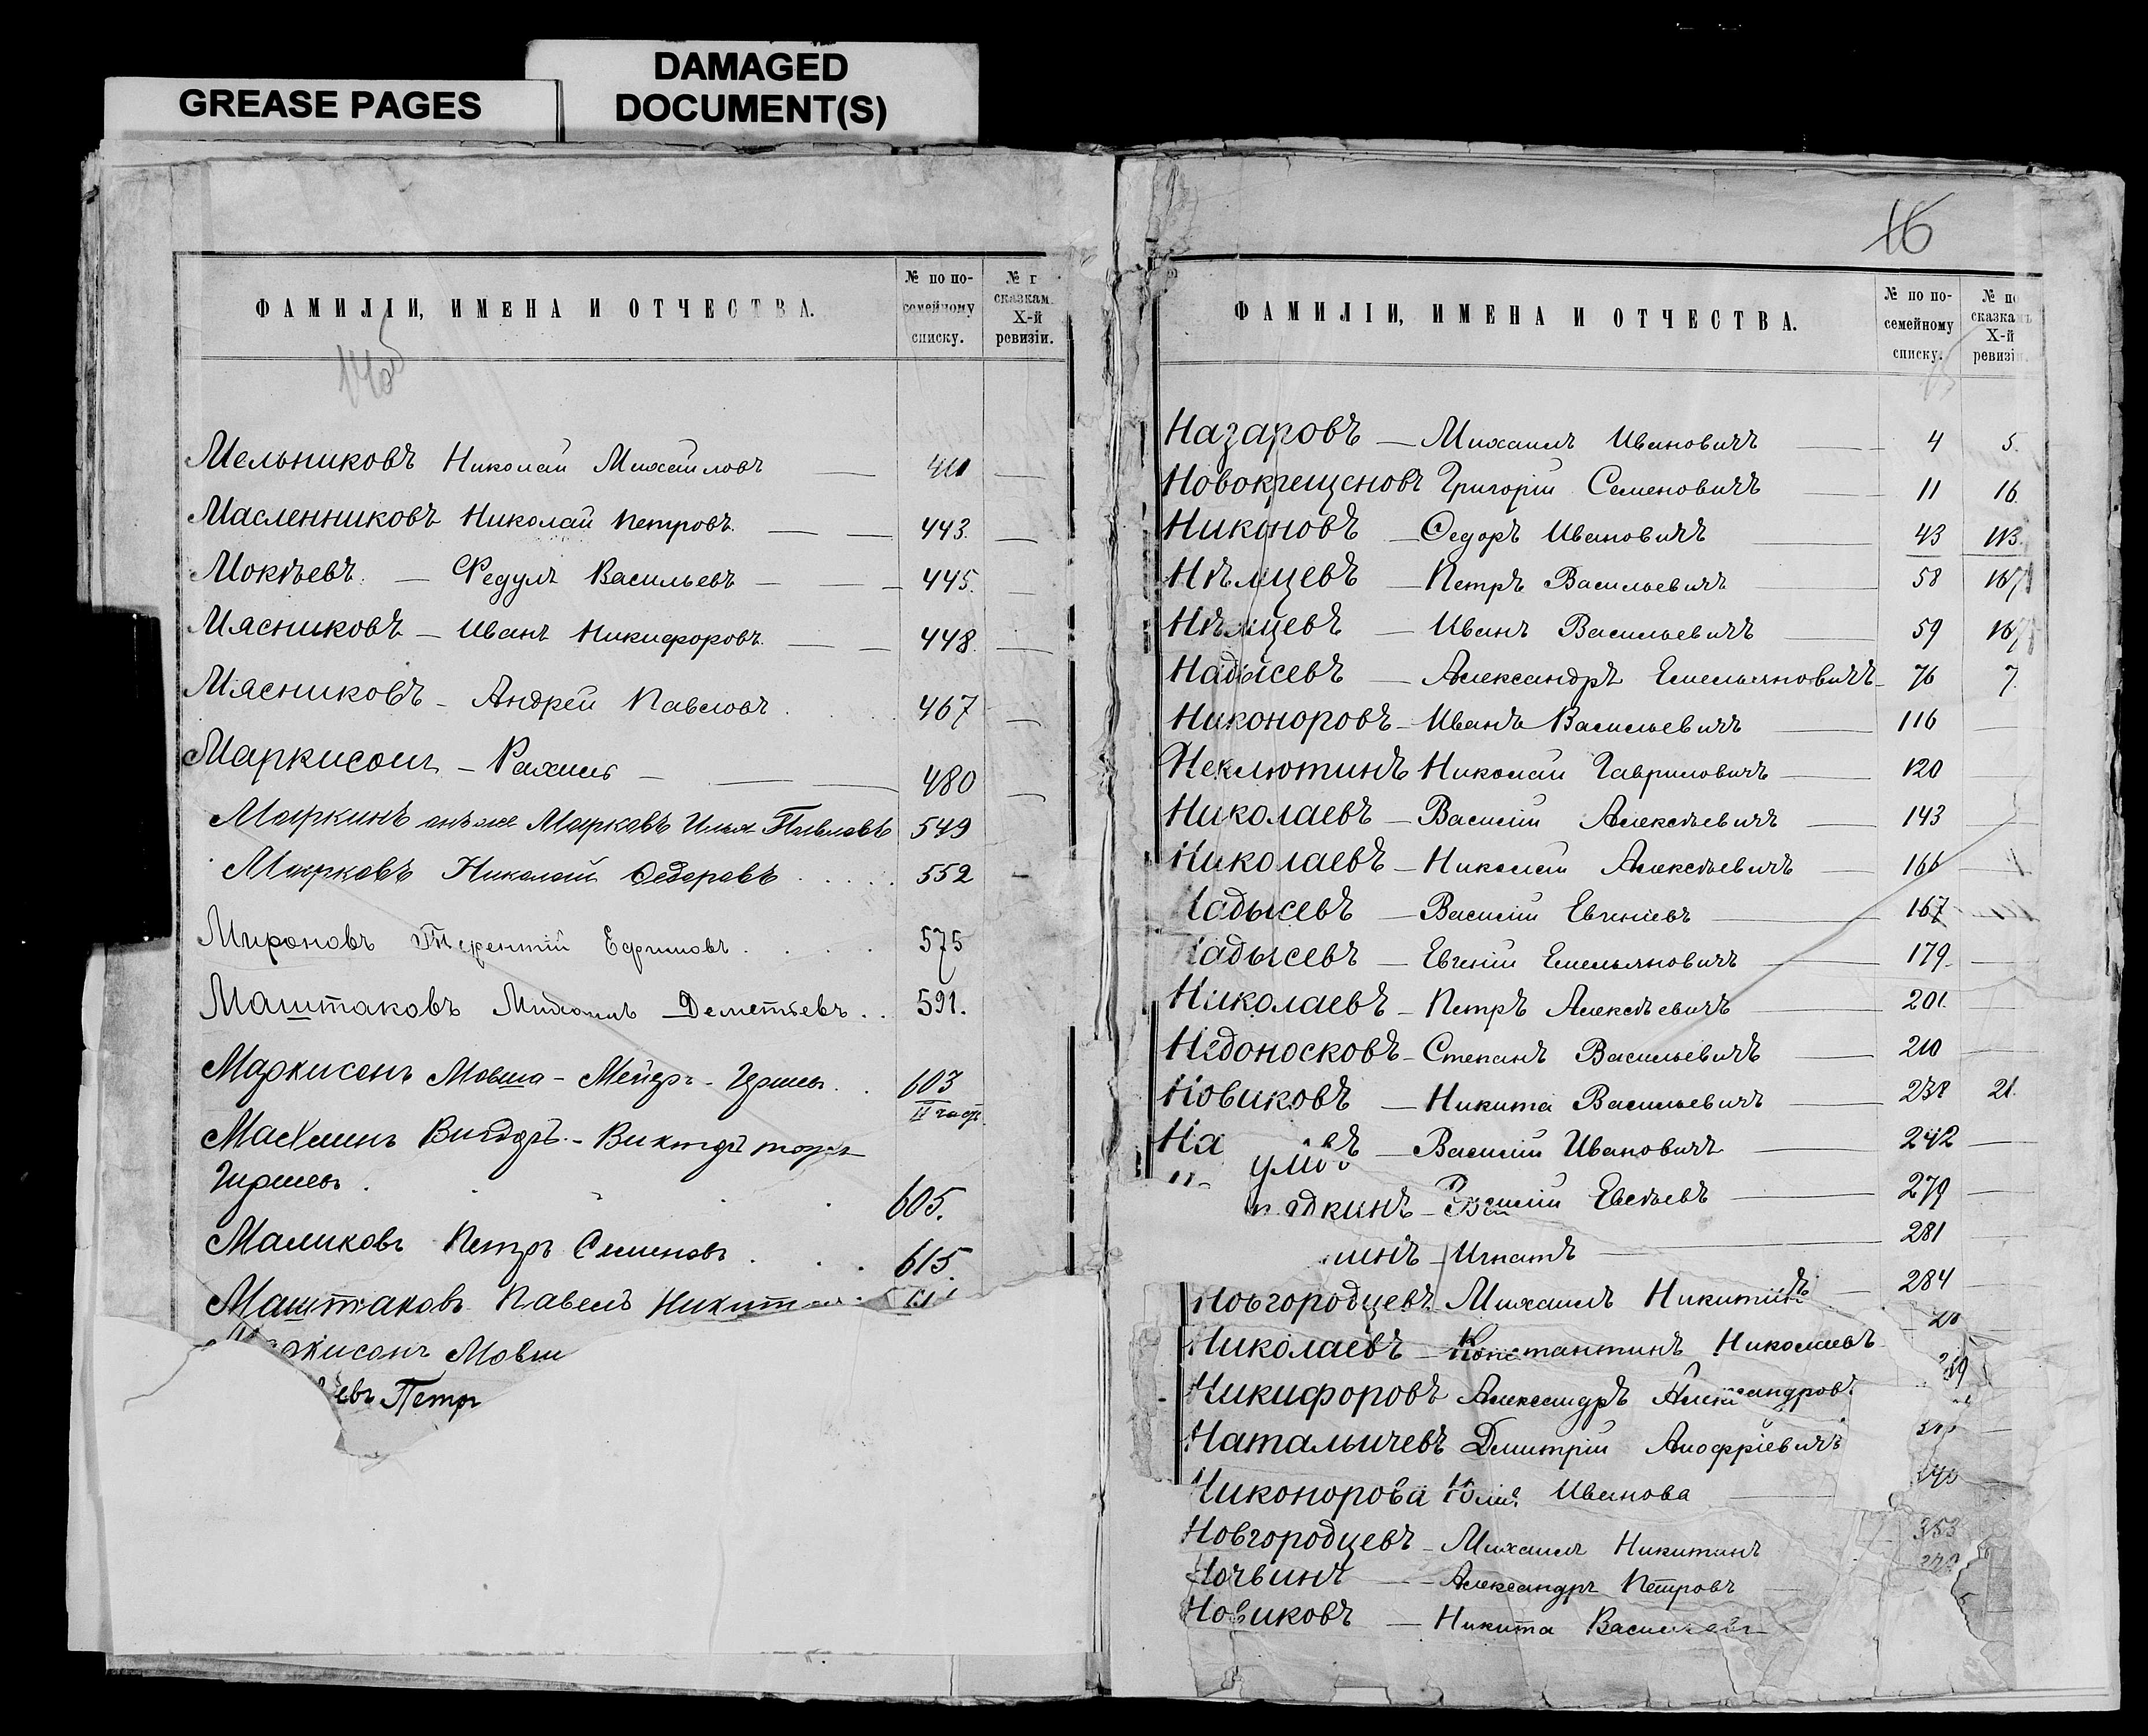 DAMAGED
DOCUMENT(S)
GREASE PAGES
ФАМИЛІИ, ИМЕНА И ОТЧЕСТВА.
№ по по-
семейному
списку.
№ г
сказкам
X-й
ревизіи.
Мельниковъ Николай Михайловъ — —
Масленниковъ Николай Петровъ. — — 443. —
Мокѣевъ. — Федулъ Васильевъ — — — 445. —
Мясниковъ — Иванъ Никифоровъ. — — 448. —
Мясниковъ — Андрей Павловъ . . . 467 —
Маркисонъ — Рахиль — — — 480 —
Маркинъ онъ же Марковъ Илья Павловъ 549
Марковъ Николай Ѳедоровъ . . . . . 552 —
Мироновъ Терентій Ефимовъ . . . . 575
Маштаковъ Михаилъ Дементьевъ . . 591.
Маркисонъ Мовша - Мейеръ - Гиршевъ . . 603
Гиршевъ . . . . 605.
Маликовъ Петръ Семеновъ . . . 615.
Маштаковъ Павелъ
ркисонъ Мовш
евъ Петр
16
ФАМИЛІИ, ИМЕНА И ОТЧЕСТВА.
№ по по-
семейному
списку.
№ по
сказкамъ
X-й
ревизіи.
Назаровъ — Михаилъ Ивановичъ — 4 5.
Новокрещеновъ Григорій Семеновичъ — 11 16.
Никоновъ — Ѳедоръ Ивановичъ — 43 113.
Нѣмцевъ — Петръ Васильевичъ — 58 167
Нѣмцевъ — Иванъ Васильевичъ — 59 167
Надысевъ — Александръ Емельяновичъ — 76 7.
Никоноровъ — Иванъ Васильевичъ — 116 —
Неклютинъ Николай Гавриловичъ — 120
Николаевъ — Василій Алексѣевичъ — 143 —
Николаевъ — Николай Алексѣевичъ — 166 —
Надысевъ — Василій Евгеніевъ — 167
Надысевъ — Евгеній Емельяновичъ — 179 —
Николаевъ — Петръ Алексѣевичъ — 201. —
Недоносковъ — Степанъ Васильевичъ — 210 —
Новиковъ — Никита Васильевичъ — 238 21.
На — Василій Ивановичъ — 242 —
дкинъ — Василій Евсѣевъ — 279 —
инъ — Игнатъ — 281 —
Новгородцевъ Михаилъ Никитинъ — 284 —
Николаевъ — Константинъ Николаевъ
Никифоровъ Александръ Александровъ
Наталычевъ Дмитрій Аноффріевичъ
Никонорова Юлія Иванова —
Новгородцевъ — Михаилъ Никитинъ 353
Ночвинъ — Александръ Петровъ —
Новиковъ — Никита Васильевъ